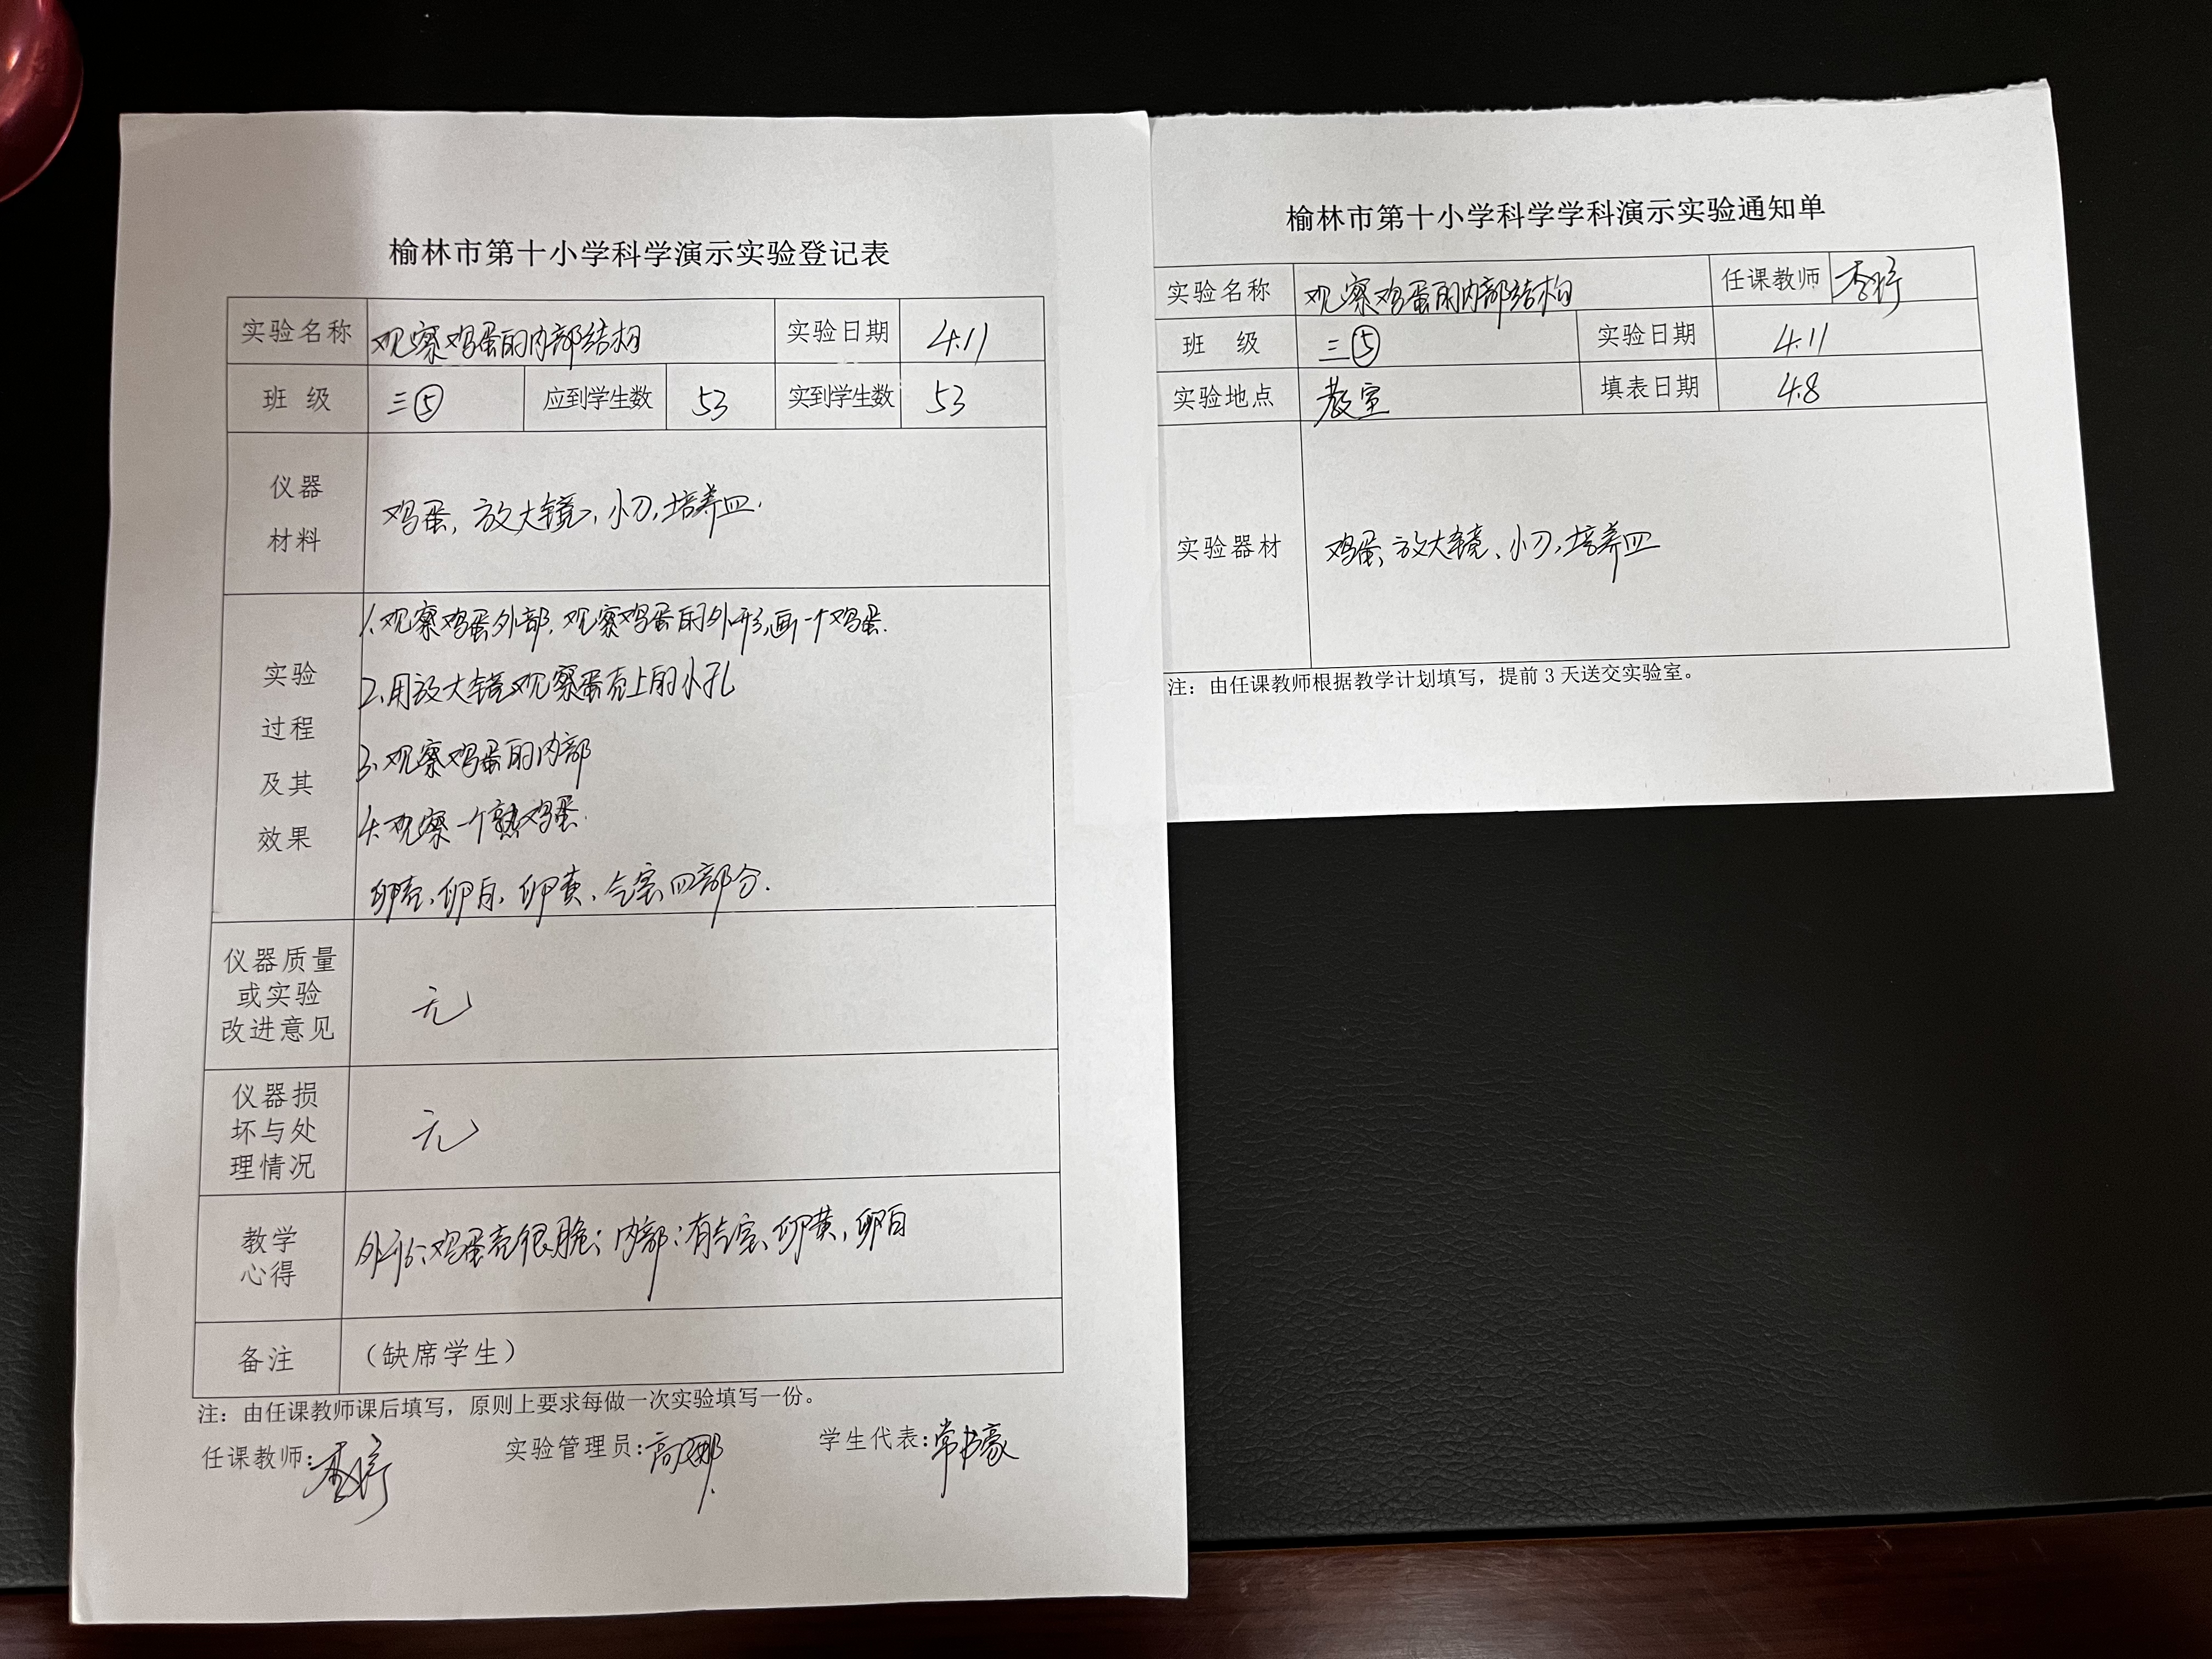 榆林市第十小学科学演示实验登记表
实验名称 观察鸡蛋的内部结构 实验日期 4.11
班 级 三⑤ 应到学生数 53 实到学生数 53
仪器
材料
鸡蛋,放大镜、小刀,培养皿.
实验
过程
及其
效果
1.观察鸡蛋外部,观察鸡蛋的外形,画一个鸡蛋.
2.用放大镜观察蛋壳上的小孔
3.观察鸡蛋的内部
4.观察一个熟鸡蛋.
卵壳、卵白,卵黄、气室四部分.
仪器质量
或实验
改进意见
无
仪器损
坏与处
理情况
无
教学
心得
外形:鸡蛋壳很脆;内部:有气室、卵黄,卵白
备注 （缺席学生）
注：由任课教师课后填写，原则上要求每做一次实验填写一份。
任课教师: 实验管理员:高娜 学生代表:常书豪
榆林市第十小学科学学科演示实验通知单
实验名称 观察鸡蛋的内部结构 任课教师
班 级 三⑤ 实验日期 4.11
实验地点 教室 填表日期 4.8
实验器材 鸡蛋、放大镜、小刀,培养皿
注：由任课教师根据教学计划填写，提前 3 天送交实验室。